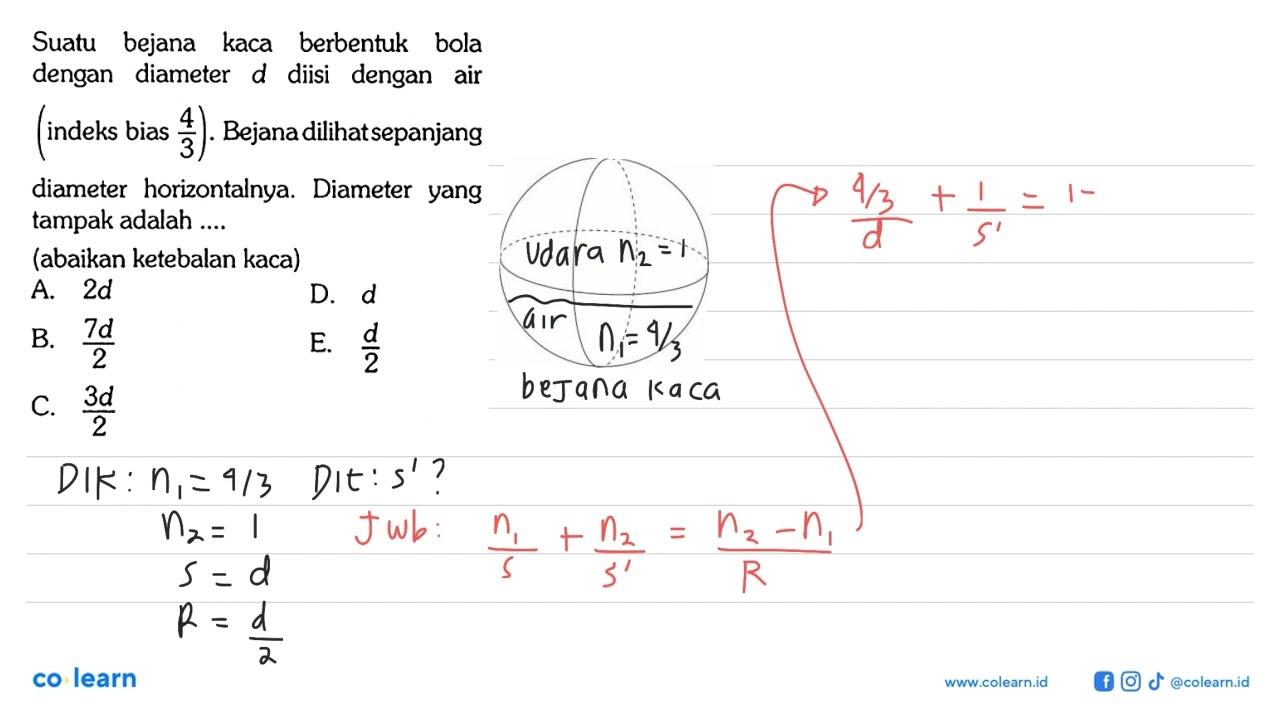 Suatu bejana kaca berbentuk bola
dengan diameter d diisi dengan air
(indeks bias 4/3). Bejana dilihat sepanjang
diameter horizontalnya. Diameter yang
tampak adalah ....
(abaikan ketebalan kaca)
A. 2d
B. 7d/2
C. 3d/2
D. d
E. d/2
Udara n₂ = 1
air n₁ = 4/3
bejana kaca
4/3/d + 1/s' = 1-
DIK: n₁ = 4/3 Dit: s'?
n₂ = 1
s = d
R = d/2
Jwb: n₁/s + n₂/s' = n₂ - n₁/R
co learn
www.colearn.id
@colearn.id